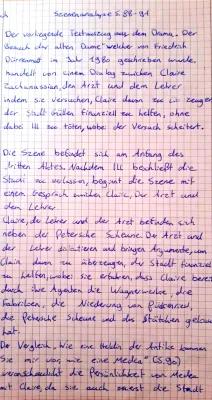 Szenenanalyse S. 88-91
Der vorliegende Textauszug aus dem Drama. Der
Besuch der alten Dame" welcher von Friedrich
Dürrenmatt im Jahr 1980 geschrieben wurde,
handelt von einem Dialog zwischen Claire
Zachanassian, den Arzt und dem Lehrer
indem sie versuchen, Claire davon zu überzeugen
der Stadt Güllen finanziell zu helfen, ohne
dabei Ill zu töten, wobei der Versuch scheitert.
Die Szene befindet sich am Anfang des
dritten Aktes. Nachdem Ill beschließt die
Stadt zu verlassen, beginnt die Szene mit
einem Gespräch zwischen Claire, Der Arzt und
dem Lehrer.
Claire, der Lehrer und der Arzt befinden sich
neben der Petersche Scheune. Der Arzt und
der Lehrer diskutieren und bringen Argumente, um
Claire davon zu überzeugen, der Stadt finanziell
zu helfen, wobei sie erfahren, dass Claire bereits
durch ihre Agenten die Wagnerwerke, die
Fabriken, die Niederung von Pückenried,
die Petersche Scheune und das Städtchen gekauft
hat.
Der Vergleich, wie eine Heldin der Antike kommen
Sie mir vor, wie eine Medea" (S. 90)
veranschaulicht die Persönlichkeit von Medea
mit Claire, da sie auch zuerst die Stadt